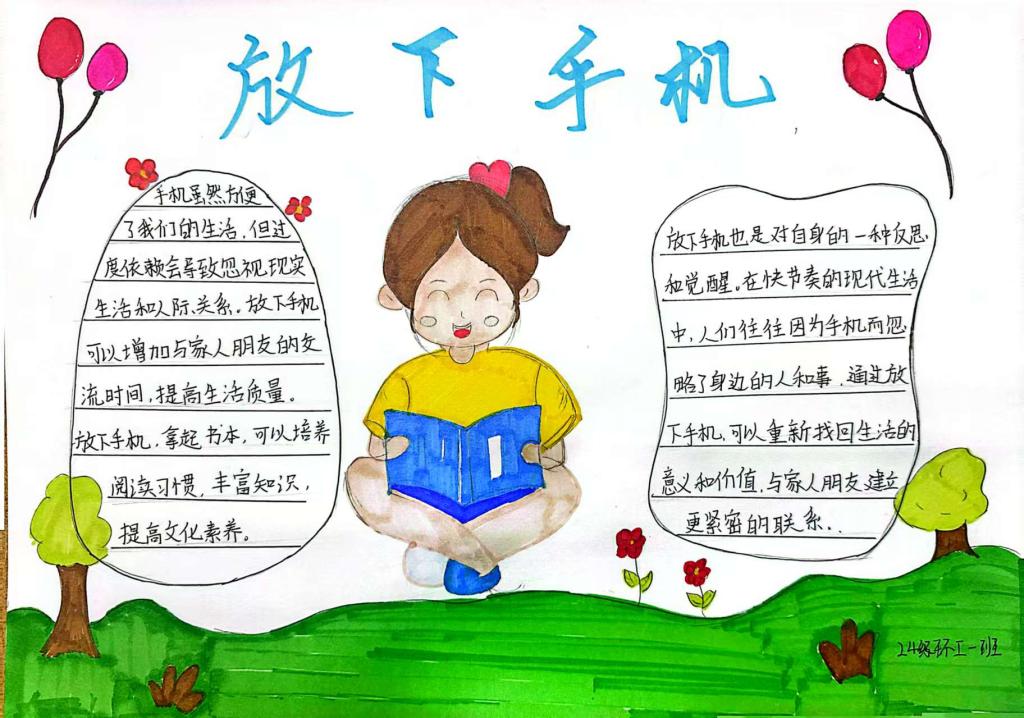 放下手机
手机虽然方便
了我们的生活，但过
度依赖会导致忽视现实
生活和人际关系。放下手机
可以增加与家人朋友的交
流时间，提高生活质量。
放下手机，拿起书本，可以培养
阅读习惯，丰富知识，
提高文化素养。
放下手机也是对自身的一种反思
和觉醒。在快节奏的现代生活
中，人们往往因为手机而忽
略了身边的人和事，通过放
下手机，可以重新找回生活的
意义和价值，与家人朋友建立
更紧密的联系．.
24级环工一班